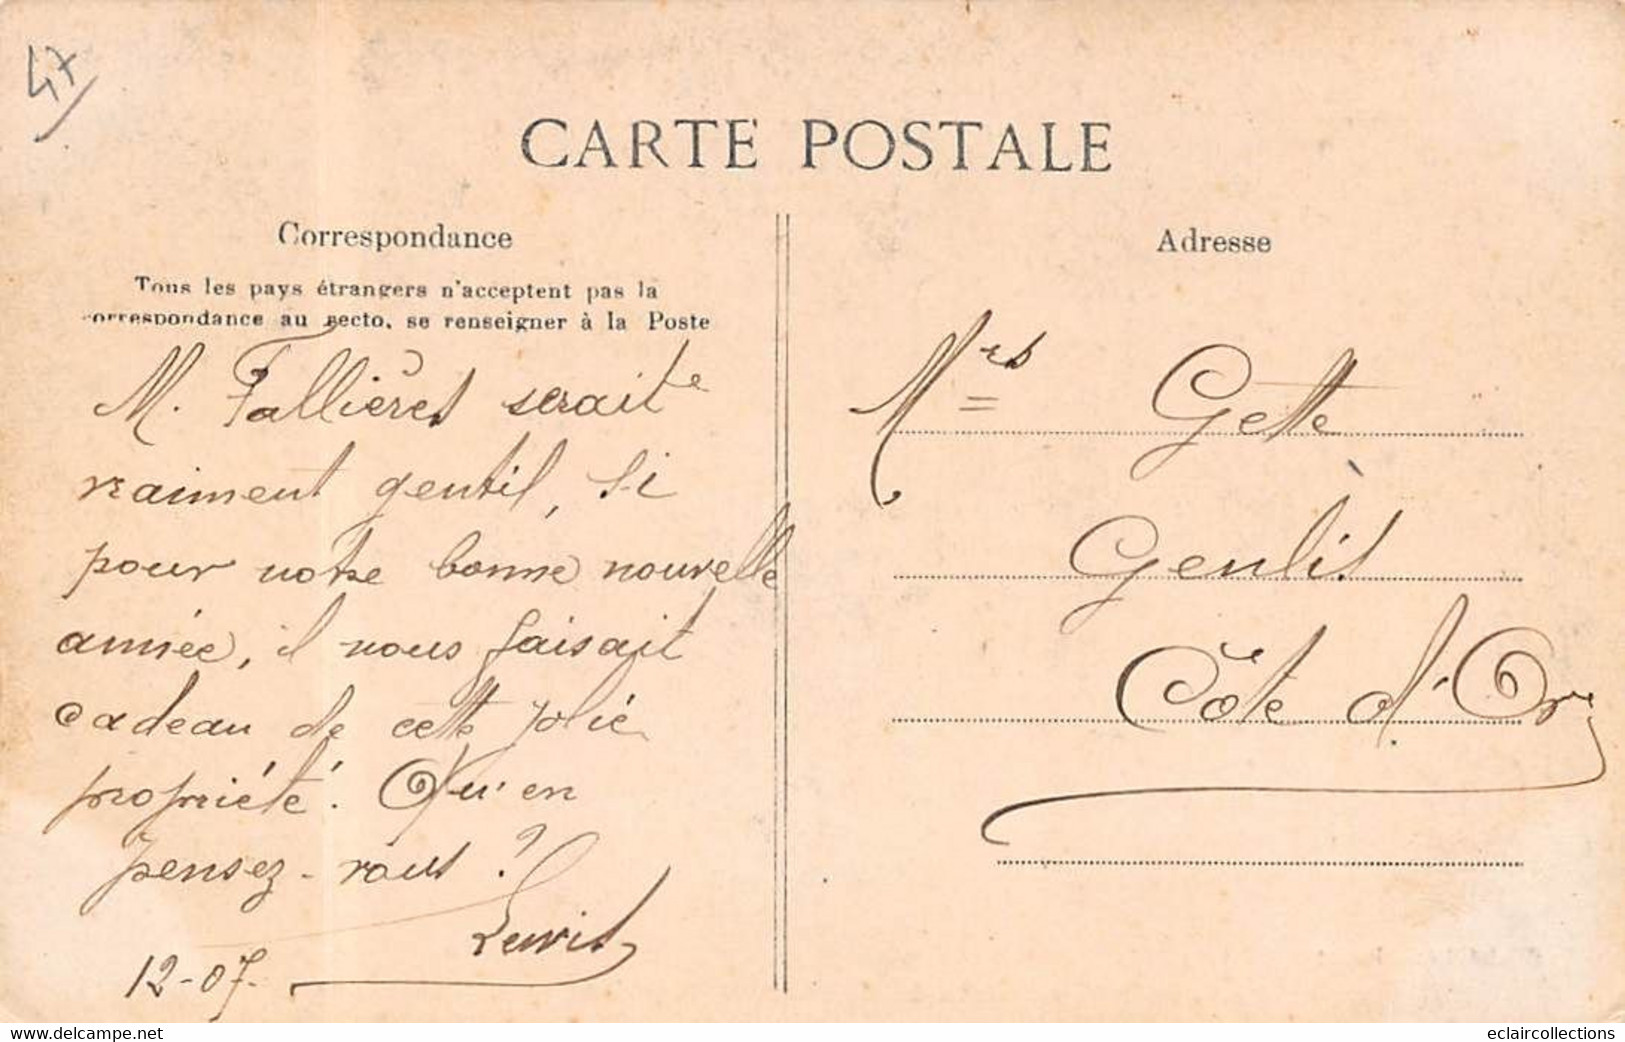 47
CARTE POSTALE
Correspondance
Tous les pays étrangers n'acceptent pas la
correspondance au recto, se renseigner à la Poste
M. Fallières serait
vraiment gentil, si
pour notre bonne nouvelle
année, il nous faisait
cadeau de cette jolie
propriété. Qu'en
pensez-vous ?
12-07.
Adresse
Gette
Genlis
Côte d'Or
eclaircollections